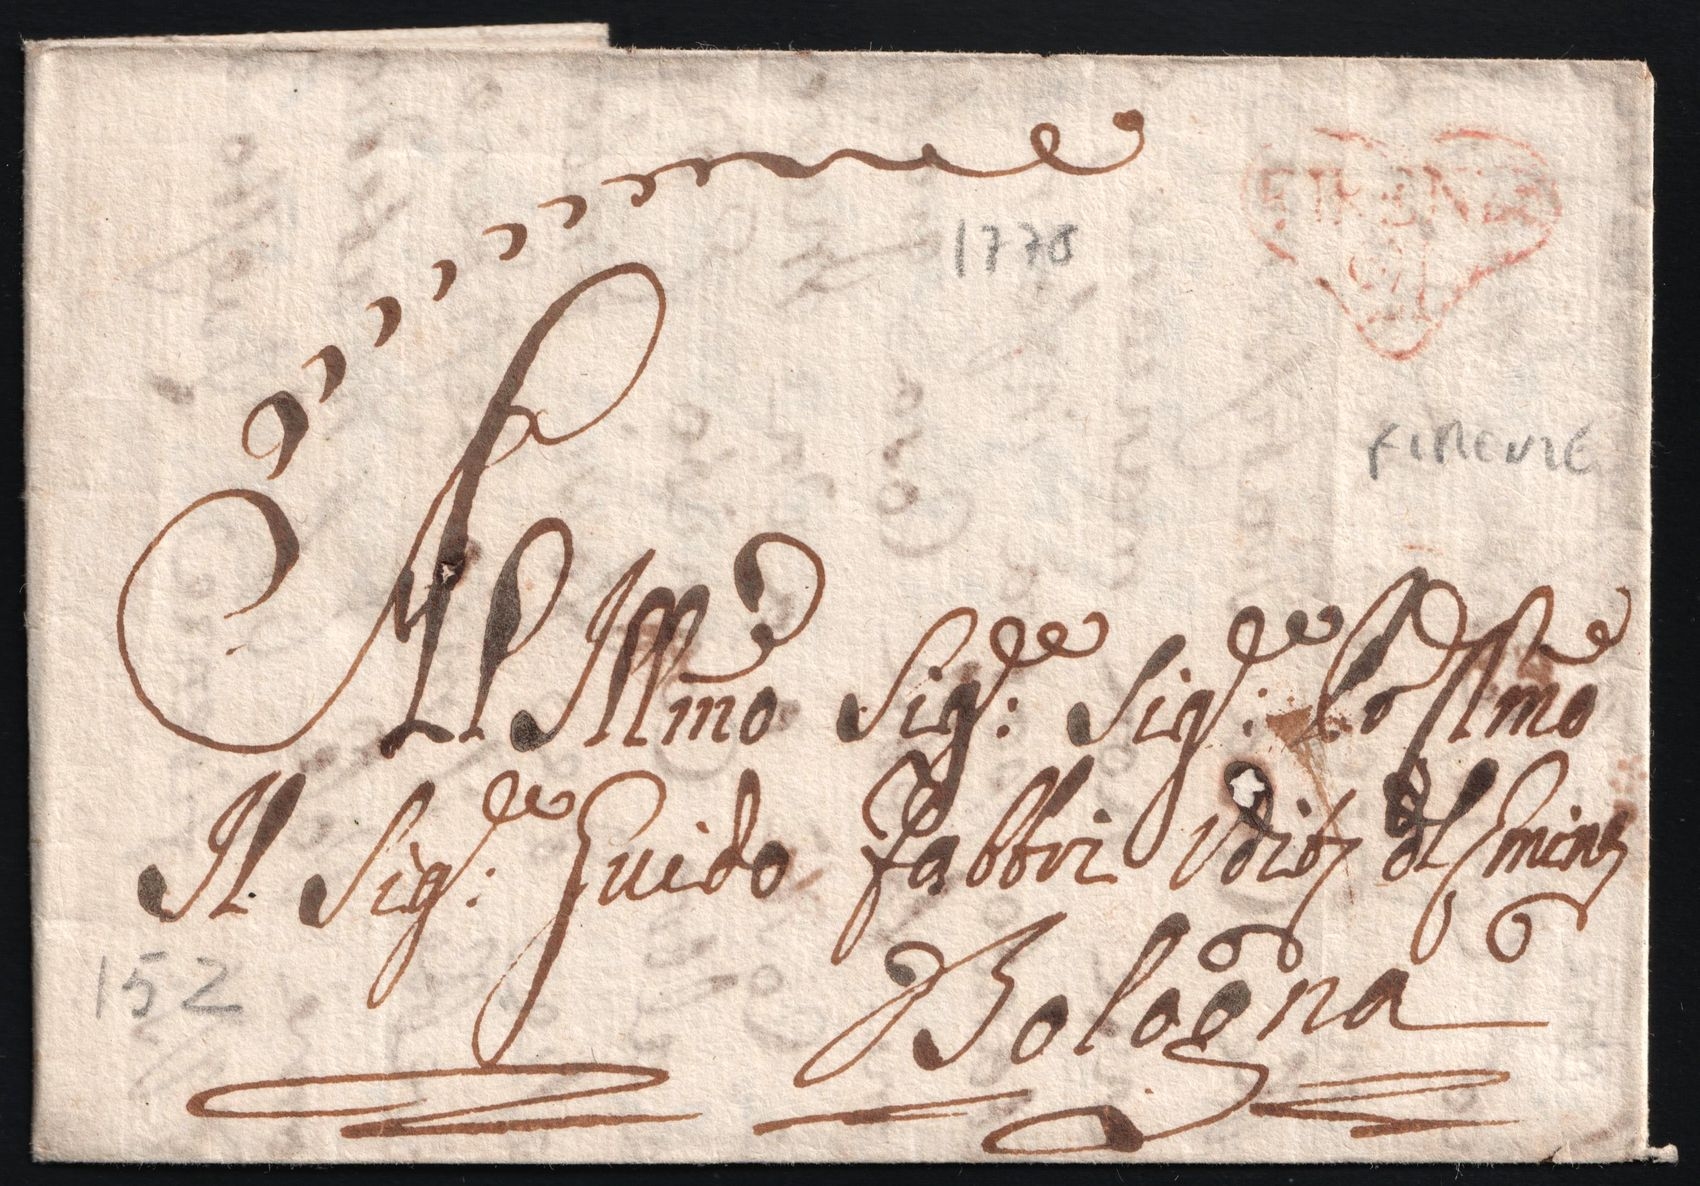 1778
FIRENZE
FIRENZE
All Illmo Sigre: Sigre:
Il Sigre: Guido Fabbri
152
Bologna